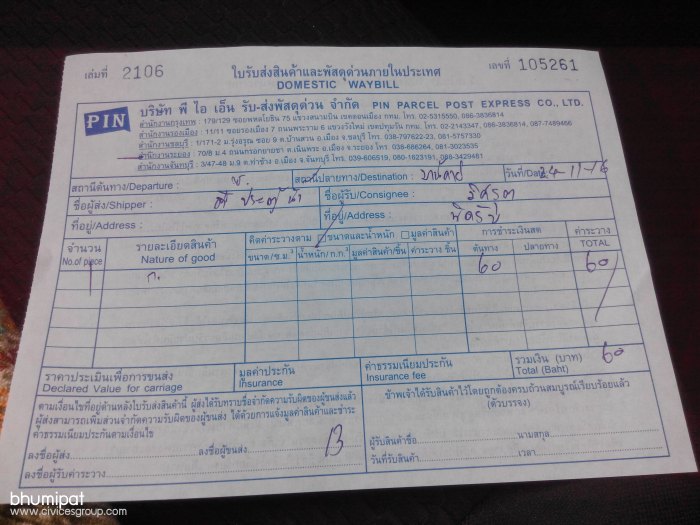 เล่มที่ 2106 ใบรับส่งสินค้าและพัสดุด่วนภายในประเทศ เลขที่ 105261
DOMESTIC WAYBILL
PIN บริษัท พี ไอ เอ็น รับ-ส่งพัสดุด่วน จำกัด PIN PARCEL POST EXPRESS CO., LTD.
สำนักงานกรุงเทพ : 179/129 ซอยพหลโยธิน 75 แขวงสนามบิน เขตดอนเมือง กทม. โทร. 02-5315550, 086-3836814
สำนักงานรองเมือง : 11/11 ซอยรองเมือง 7 ถนนพระราม 6 แขวงวังใหม่ เขตปทุมวัน กทม. โทร. 02-2143347, 086-3836814, 087-7489466
สำนักงานชลบุรี : 1/171-2 ม.รุ่งอรุณ ซอย 9 ต.บ้านสวน อ.เมือง จ.ชลบุรี โทร. 038-797622-23, 081-5757330
สำนักงานระยอง : 70/8 ม.4 ถนนกรอกยายชา ต.เนินพระ อ.เมือง จ.ระยอง โทร. 038-686264, 081-3023535
สำนักงานจันทบุรี : 3/47-48 ม.9 ต.ท่าช้าง อ.เมือง จ.จันทบุรี โทร. 039-606519, 080-1623191, 086-3429481
สถานีต้นทาง/Departure : สถานีปลายทาง/Destination : วันที่/Date 24-11-16
ชื่อผู้ส่ง/Shipper : ชื่อผู้รับ/Consignee :
ที่อยู่/Address : ที่อยู่/Address :
จำนวน รายละเอียดสินค้า คิดค่าระวางตาม ขนาดและน้ำหนัก มูลค่าสินค้า การชำระเงินสด ค่าระวาง
No.of piece Nature of good ขนาด/ซ.ม.³ น้ำหนัก/ก.ก.² มูลค่าสินค้า/ชิ้น ค่าระวาง ชิ้น ต้นทาง ปลายทาง TOTAL
1 ก. 60 60
ราคาประเมินเพื่อการขนส่ง มูลค่าประกัน ค่าธรรมเนียมประกัน รวมเงิน (บาท) 60
Declared Value for carriage Insurance Insurance fee Total (Baht)
ตามเงื่อนไขที่อยู่ด้านหลังใบรับส่งสินค้านี้ ผู้ส่งได้รับทราบข้อจำกัดความรับผิดของผู้ขนส่งแล้ว
ผู้ส่งสามารถเพิ่มส่วนจำกัดความรับผิดของผู้ขนส่ง ได้ด้วยการแจ้งมูลค่าสินค้าและชำระ
ค่าธรรมเนียมประกันตามเงื่อนไข
ลงชื่อผู้ส่ง ลงชื่อผู้ขนส่ง B
ลงชื่อผู้รับค่าระวาง
ข้าพเจ้าได้รับสินค้าไว้โดยถูกต้องครบถ้วนสมบูรณ์เรียบร้อยแล้ว
(ตัวบรรจง)
ผู้รับสินค้าชื่อ นามสกุล
วันที่รับสินค้า เวลา
bhumipat
www.civicesgroup.com